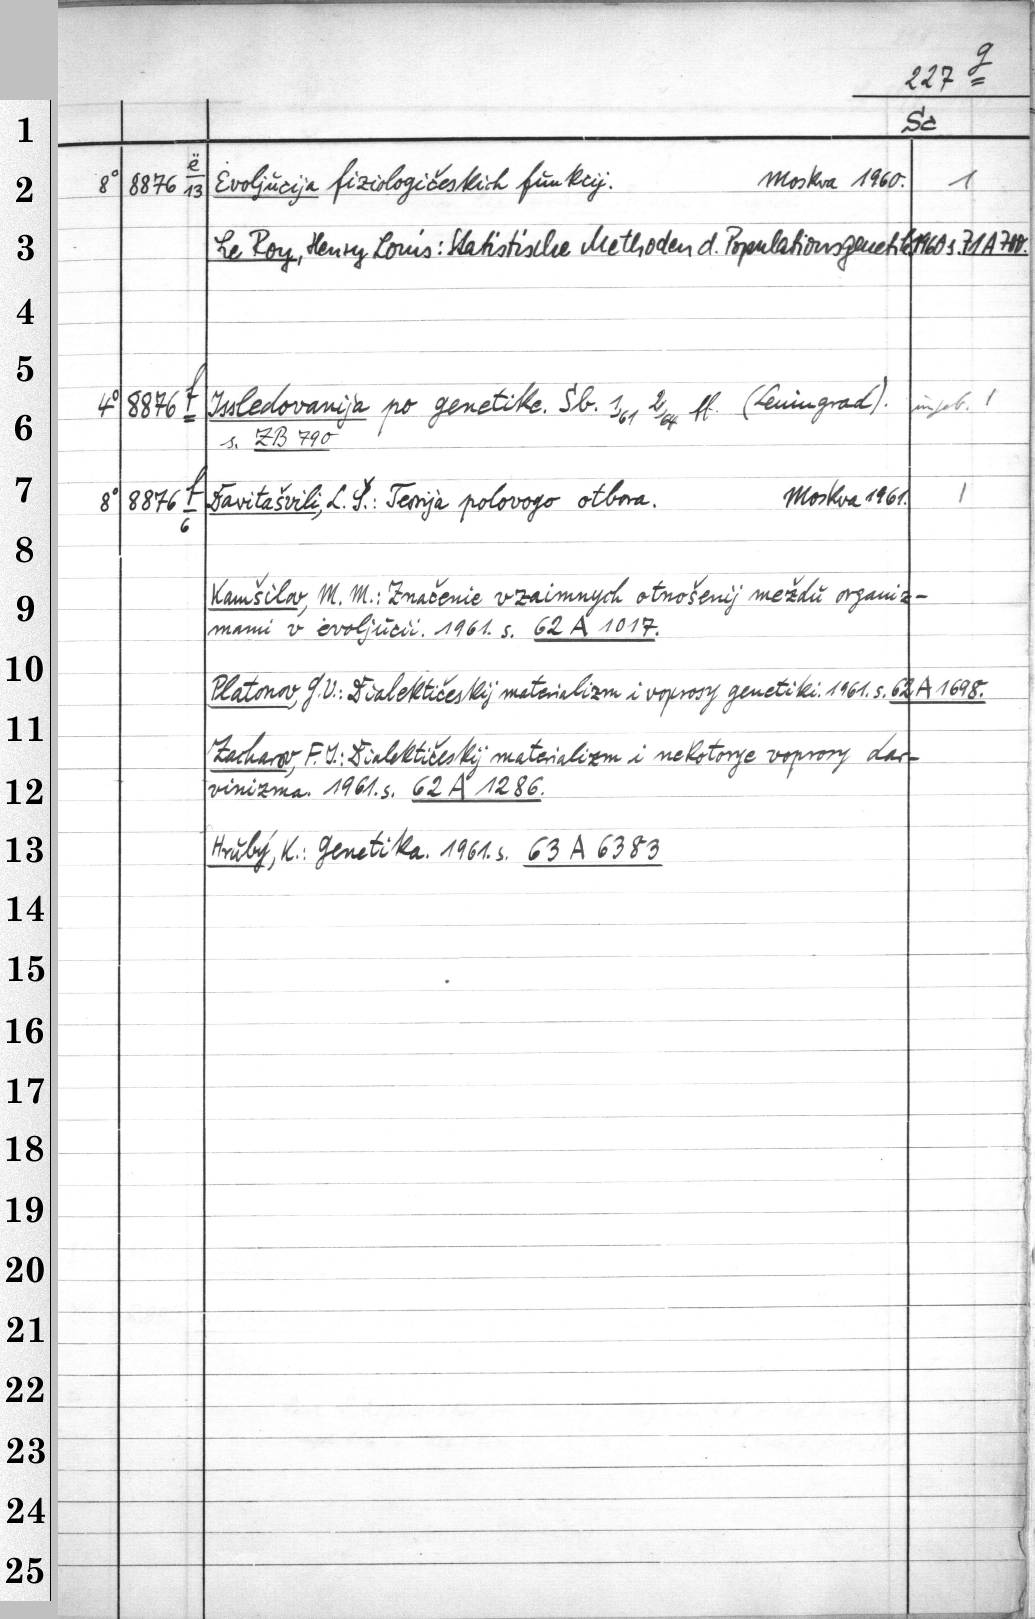 227 g
Sc
1
2 8° 8876 ë/13 Evoljucija fiziologičeskich funkcij. Moskva 1960. 1
3 Le Roy, Henry Louis: Statistische Methoden d. Populationsgenetik 1960 s. 71 A 700.
4
5
6 4° 8876 f Issledovanija po genetike. Sb. 1/61 2/64 ff. (Leningrad). 1
s. ZB 790
7 8° 8876 f/6 Davitašvili, L. Š.: Teorija polovogo otbora. Moskva 1961. 1
8
9 Kamšilov, M. M.: Značenie vzaimnych otnošenij meždŭ organiz-
mami v ėvoljŭcii. 1961. s. 62 A 1017.
10 Platonov, G. V.: Dialektičeskij materializm i voprosy genetiki. 1961. s. 62 A 1698.
11 Zacharov, F. I.: Dialektičeskij materializm i nekotorye voprosy dar-
12 vinizma. 1961. s. 62 A 1286.
13 Hrŭbý, K.: Genetika. 1961. s. 63 A 6383
14
15
16
17
18
19
20
21
22
23
24
25